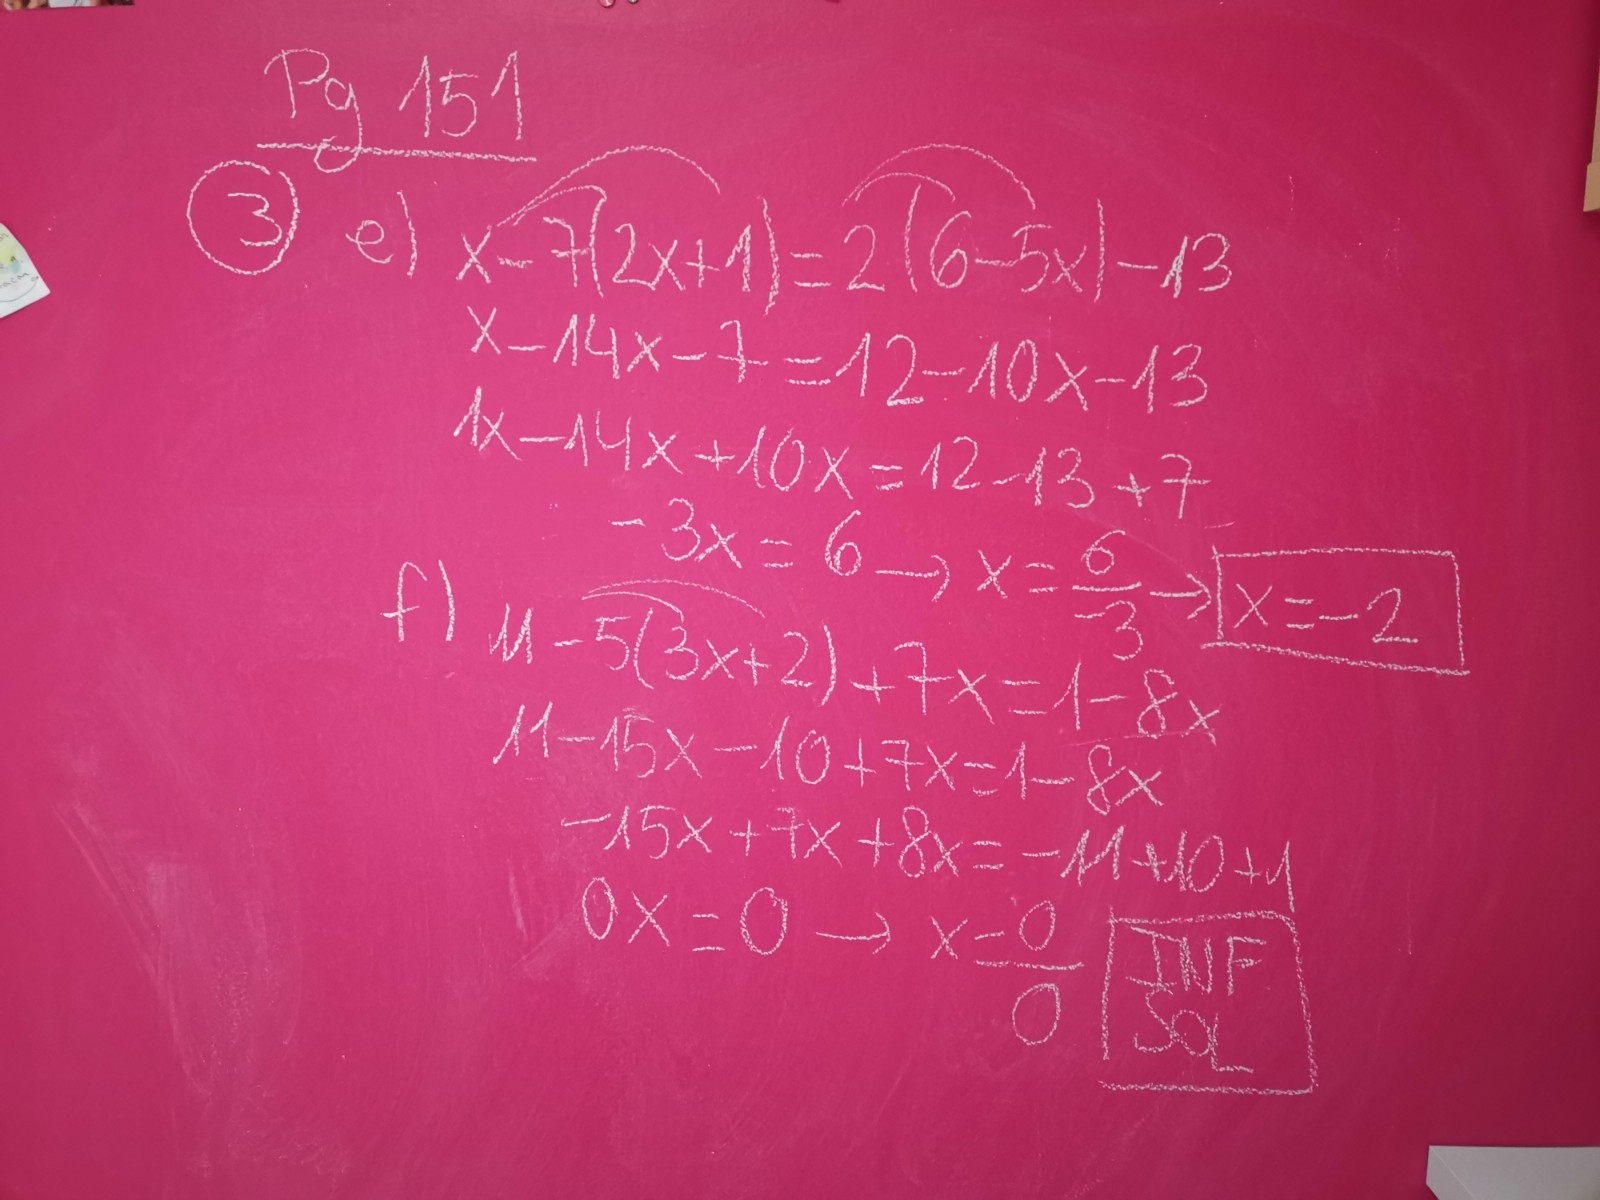 Pg 151
3 e) x-7(2x+1)=2(6-5x)-13
x-14x-7=12-10x-13
1x-14x+10x=12-13+7
-3x=6→x=6/-3→x=-2
f) 11-5(3x+2)+7x=1-8x
11-15x-10+7x=1-8x
-15x+7x+8x=-11+10+1
0x=0→x=0/0 INF
SOL